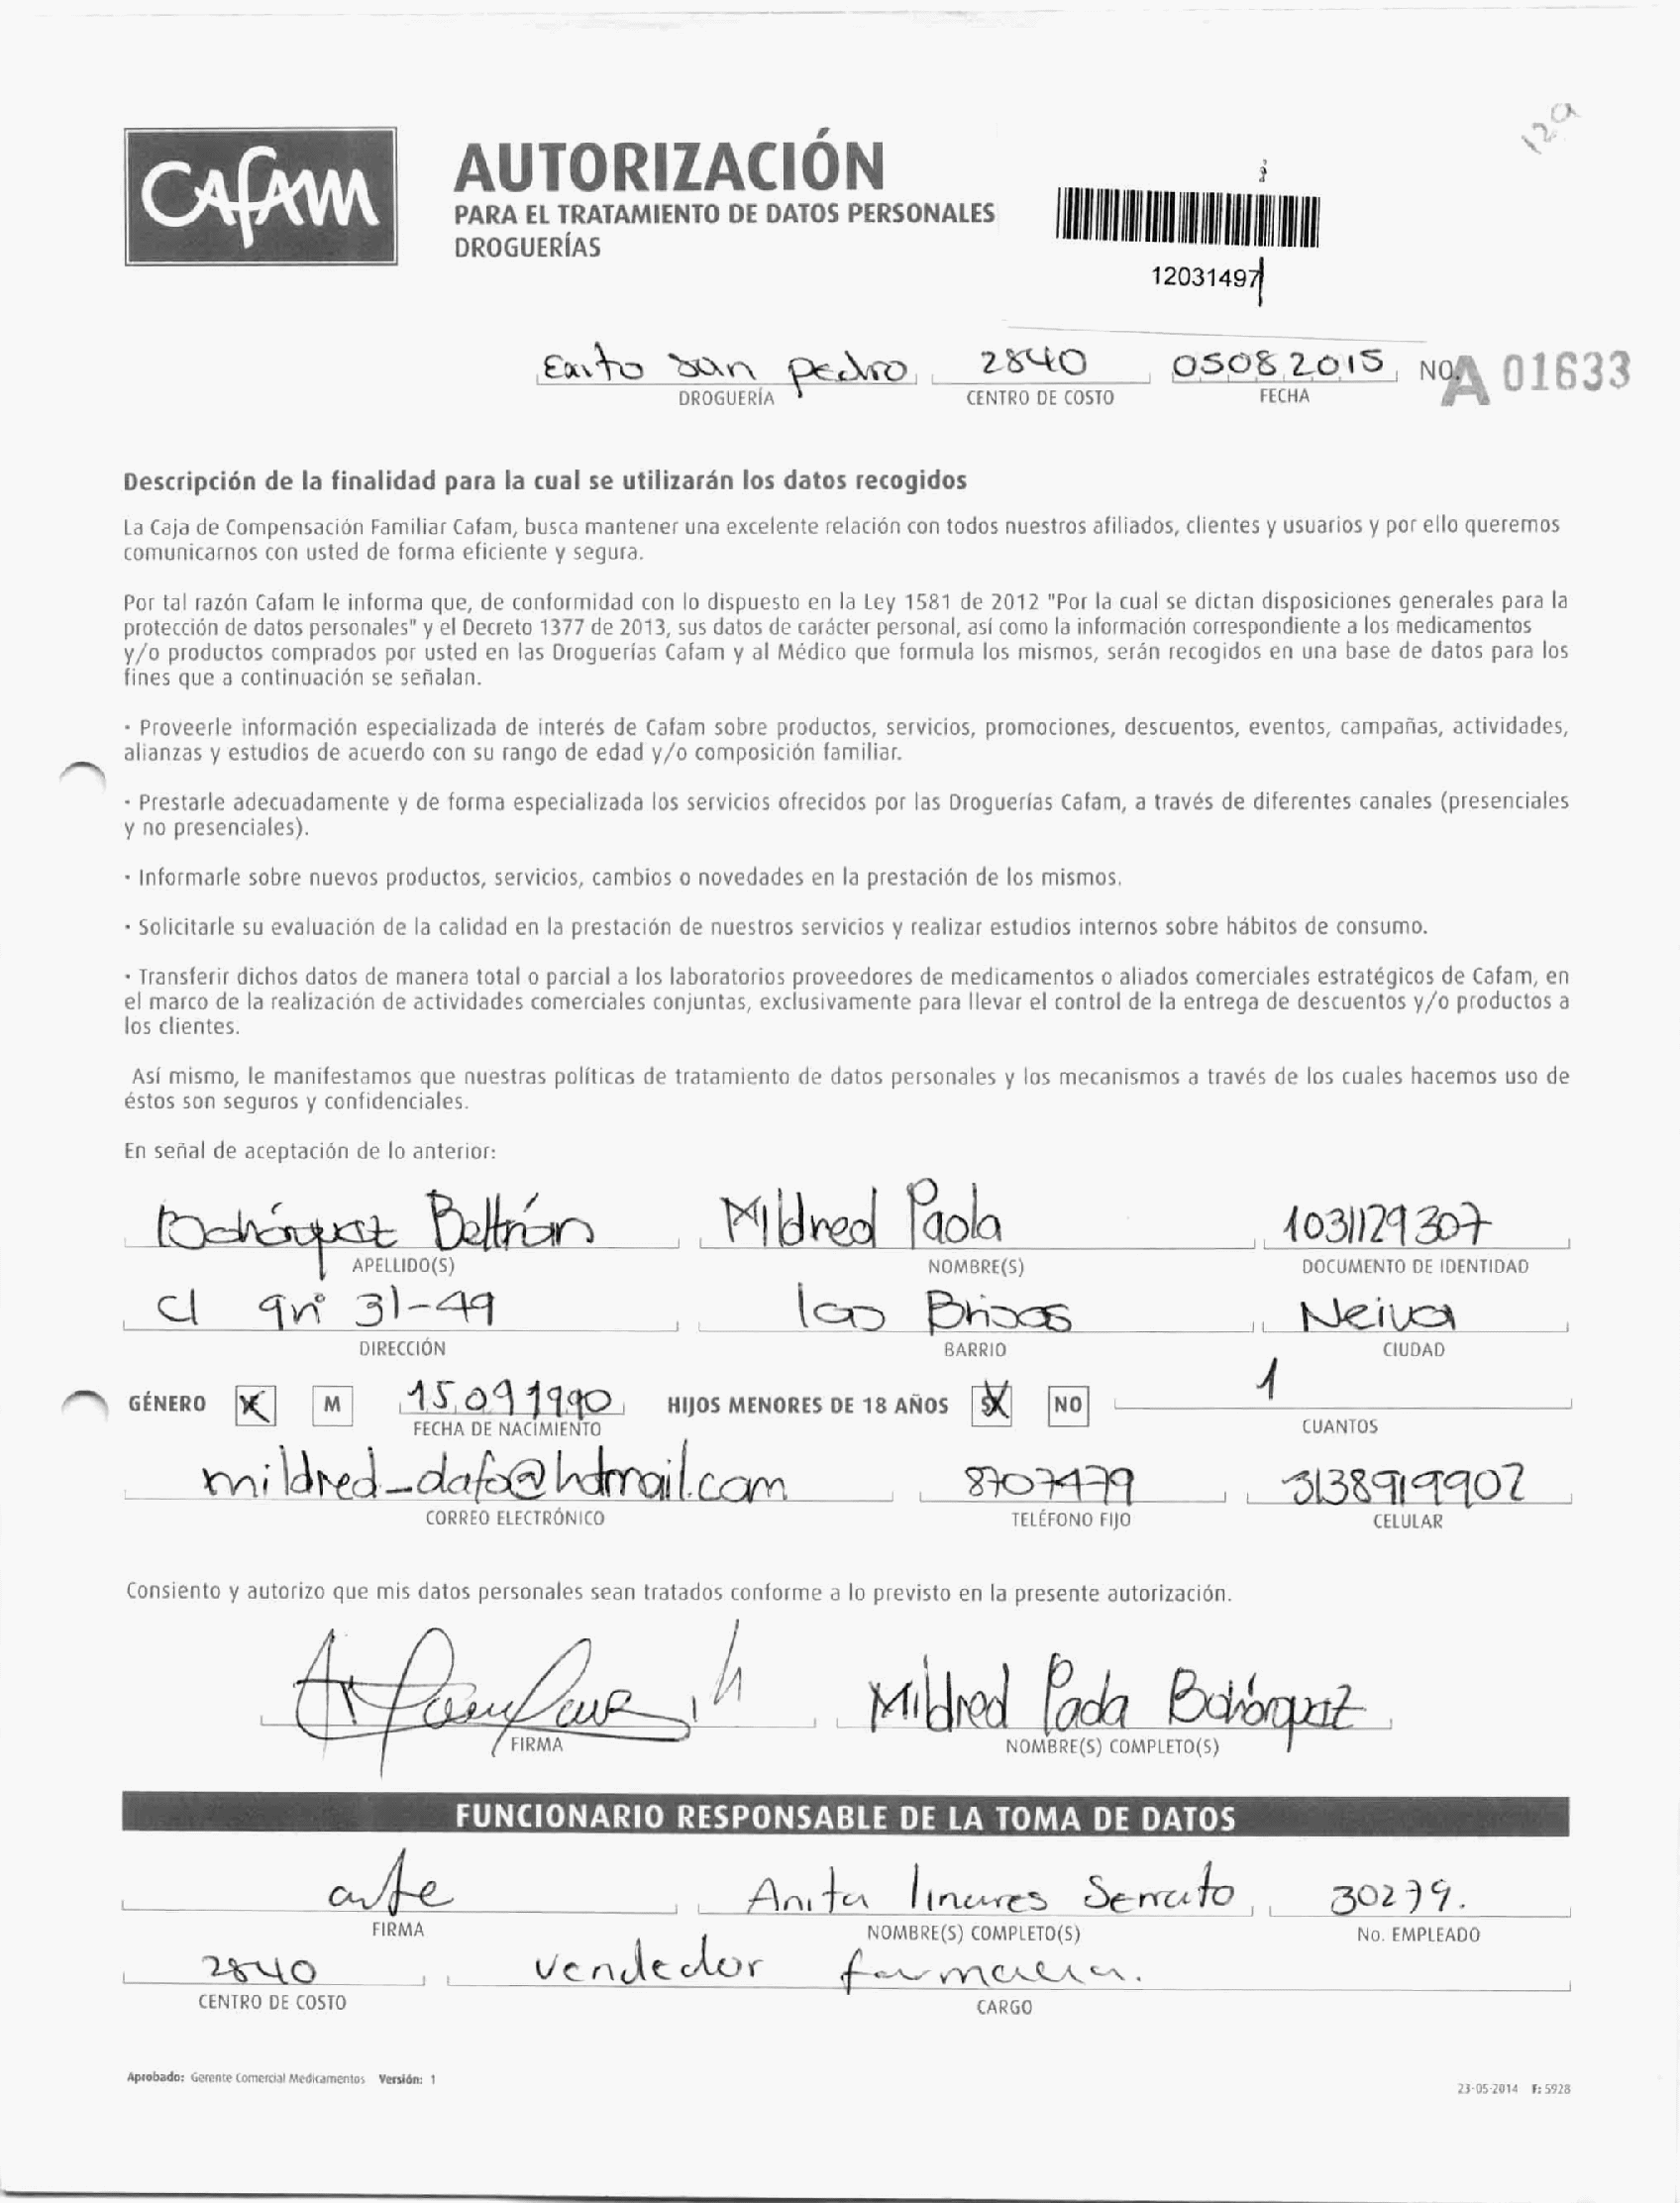 12a
CAFAM
AUTORIZACIÓN
PARA EL TRATAMIENTO DE DATOS PERSONALES
DROGUERÍAS
12031497
Exito san pedro 2840 05082015 NO. A 01633
DROGUERÍA CENTRO DE COSTO FECHA
Descripción de la finalidad para la cual se utilizarán los datos recogidos
La Caja de Compensación Familiar Cafam, busca mantener una excelente relación con todos nuestros afiliados, clientes y usuarios y por ello queremos
comunicarnos con usted de forma eficiente y segura.
Por tal razón Cafam le informa que, de conformidad con lo dispuesto en la Ley 1581 de 2012 "Por la cual se dictan disposiciones generales para la
protección de datos personales" y el Decreto 1377 de 2013, sus datos de carácter personal, así como la información correspondiente a los medicamentos
y/o productos comprados por usted en las Droguerías Cafam y al Médico que formula los mismos, serán recogidos en una base de datos para los
fines que a continuación se señalan.
· Proveerle información especializada de interés de Cafam sobre productos, servicios, promociones, descuentos, eventos, campañas, actividades,
alianzas y estudios de acuerdo con su rango de edad y/o composición familiar.
· Prestarle adecuadamente y de forma especializada los servicios ofrecidos por las Droguerías Cafam, a través de diferentes canales (presenciales
y no presenciales).
· Informarle sobre nuevos productos, servicios, cambios o novedades en la prestación de los mismos.
· Solicitarle su evaluación de la calidad en la prestación de nuestros servicios y realizar estudios internos sobre hábitos de consumo.
· Transferir dichos datos de manera total o parcial a los laboratorios proveedores de medicamentos o aliados comerciales estratégicos de Cafam, en
el marco de la realización de actividades comerciales conjuntas, exclusivamente para llevar el control de la entrega de descuentos y/o productos a
los clientes.
Así mismo, le manifestamos que nuestras políticas de tratamiento de datos personales y los mecanismos a través de los cuales hacemos uso de
éstos son seguros y confidenciales.
En señal de aceptación de lo anterior:
Bohórquez Beltrán Mildred Paola 1031129307
APELLIDO(S) NOMBRE(S) DOCUMENTO DE IDENTIDAD
cl 9nº 31-49 las Brisas Neiva
DIRECCIÓN BARRIO CIUDAD
GÉNERO X M 15091990 HIJOS MENORES DE 18 AÑOS X NO 1
FECHA DE NACIMIENTO CUANTOS
mildred_dafo@hotmail.com 8707479 3138919902
CORREO ELECTRÓNICO TELÉFONO FIJO CELULAR
Consiento y autorizo que mis datos personales sean tratados conforme a lo previsto en la presente autorización.
Mildred Paola Bohórquez
FIRMA NOMBRE(S) COMPLETO(S)
FUNCIONARIO RESPONSABLE DE LA TOMA DE DATOS
Anita linares Serrato 30279.
FIRMA NOMBRE(S) COMPLETO(S) No. EMPLEADO
2840 vendedor farmacia.
CENTRO DE COSTO CARGO
Aprobado: Gerente Comercial Medicamentos Versión: 1
23-05-2014 F: 5928